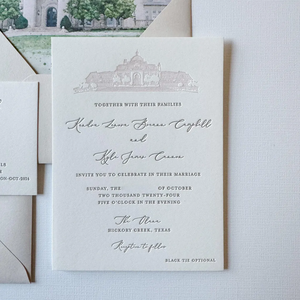 TOGETHER WITH THEIR FAMILIES
Campbell
and
Kyle James
INVITE YOU TO CELEBRATE IN THEIR MARRIAGE
SUNDAY, THE OF OCTOBER
TWO THOUSAND TWENTY-FOUR
FIVE O'CLOCK IN THE EVENING
The Olana
HICKORY CREEK, TEXAS
Reception to follow
BLACK TIE OPTIONAL